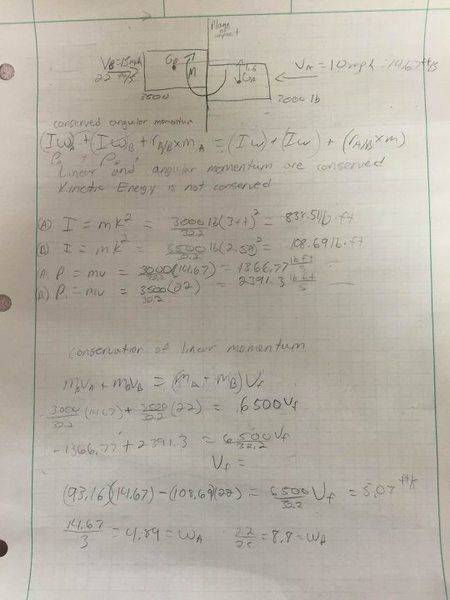 Plane of impact
V_B = 15mph
22 ft/s
G_B
M
1.5
G_A
V_A = 10mph = 14.67 ft/s
3500
3000 lb
conserved angular momentum
(Iω)_A + (Iω)_B + r_A/B × m_A = (Iω) + (Iω) + (r_A/B × m)
Linear and angular momentum are conserved
Kinetic Energy is not conserved
(A) I = mk² = 3000/32.2 lb (3ft)² = 838.51 lb·ft
(B) I = mk² = 3500/32.2 lb (2.5ft)² = lb·ft
(A) P = mv = 3000/32.2 (14.67) = 1366.77 lb ft/s
(B) P = mv = 3500/32.2 (22) = 2391.3 lb ft/s
conservation of linear momentum
m_A v_A + m_B v_B = (m_A + m_B) V_f
-3000/32.2 (14.67) + 3500/32.2 (22) = 6500 V_f
-1366.77 + 2391.3 = 6500/32.2 V_f
V_f =
(93.16)(14.67) - (108.69)(22) = 6500/32.2 V_f = 5.07 ft/s
14.67/3 = 4.89 = ω_A 22/2.5 = 8.8 = ω_B